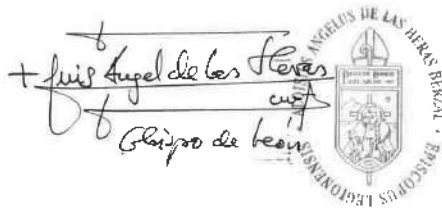 + Luis Angel de las Heras
cmf
Obispo de León
ANGELUS DE LAS HERAS BERZAL · EPISCOPUS LEGIONENSIS